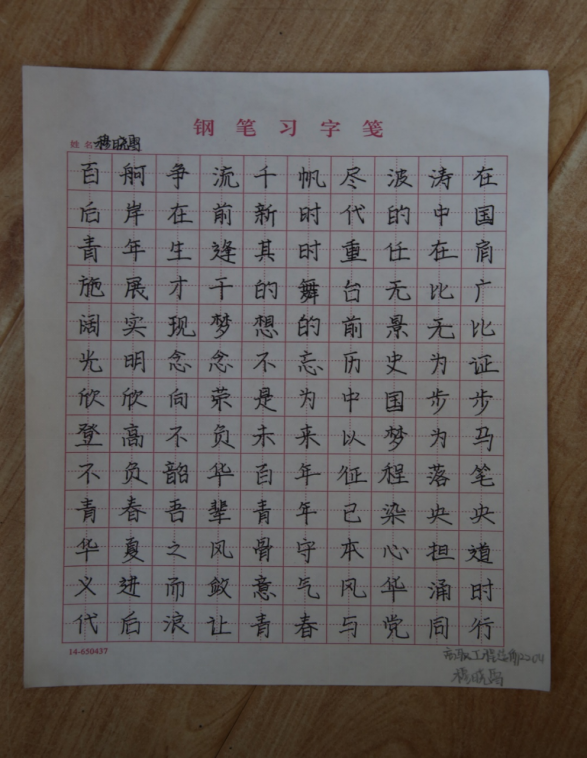 钢笔习字笺
姓名 穆晓雨
百舸争流千帆尽波涛在
后岸在前新时代的中国
青年生逢其时重任在肩
施展才干的舞台无比广
阔实现梦想的前景无比
光明念念不忘历史为证
欣欣向荣是为中国步步
登高不负未来以梦为马
不负韶华百年征程落笔
青春吾辈青年已染央央
华夏之风骨守本心担道
义进而敛意气风华涌时
代后浪让青春与党同行
14-650437